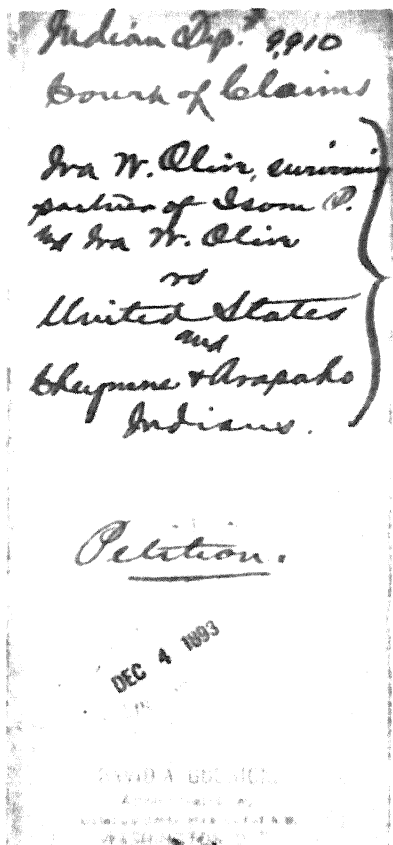 Indian Dep. # 9910
Court of Claims
Ira W. Olive, surviving
partner of Isom P.
and Ira W. Olive
vs
United States
and
Cheyenne & Arapaho
Indians.
Petition.
DEC 4 1893